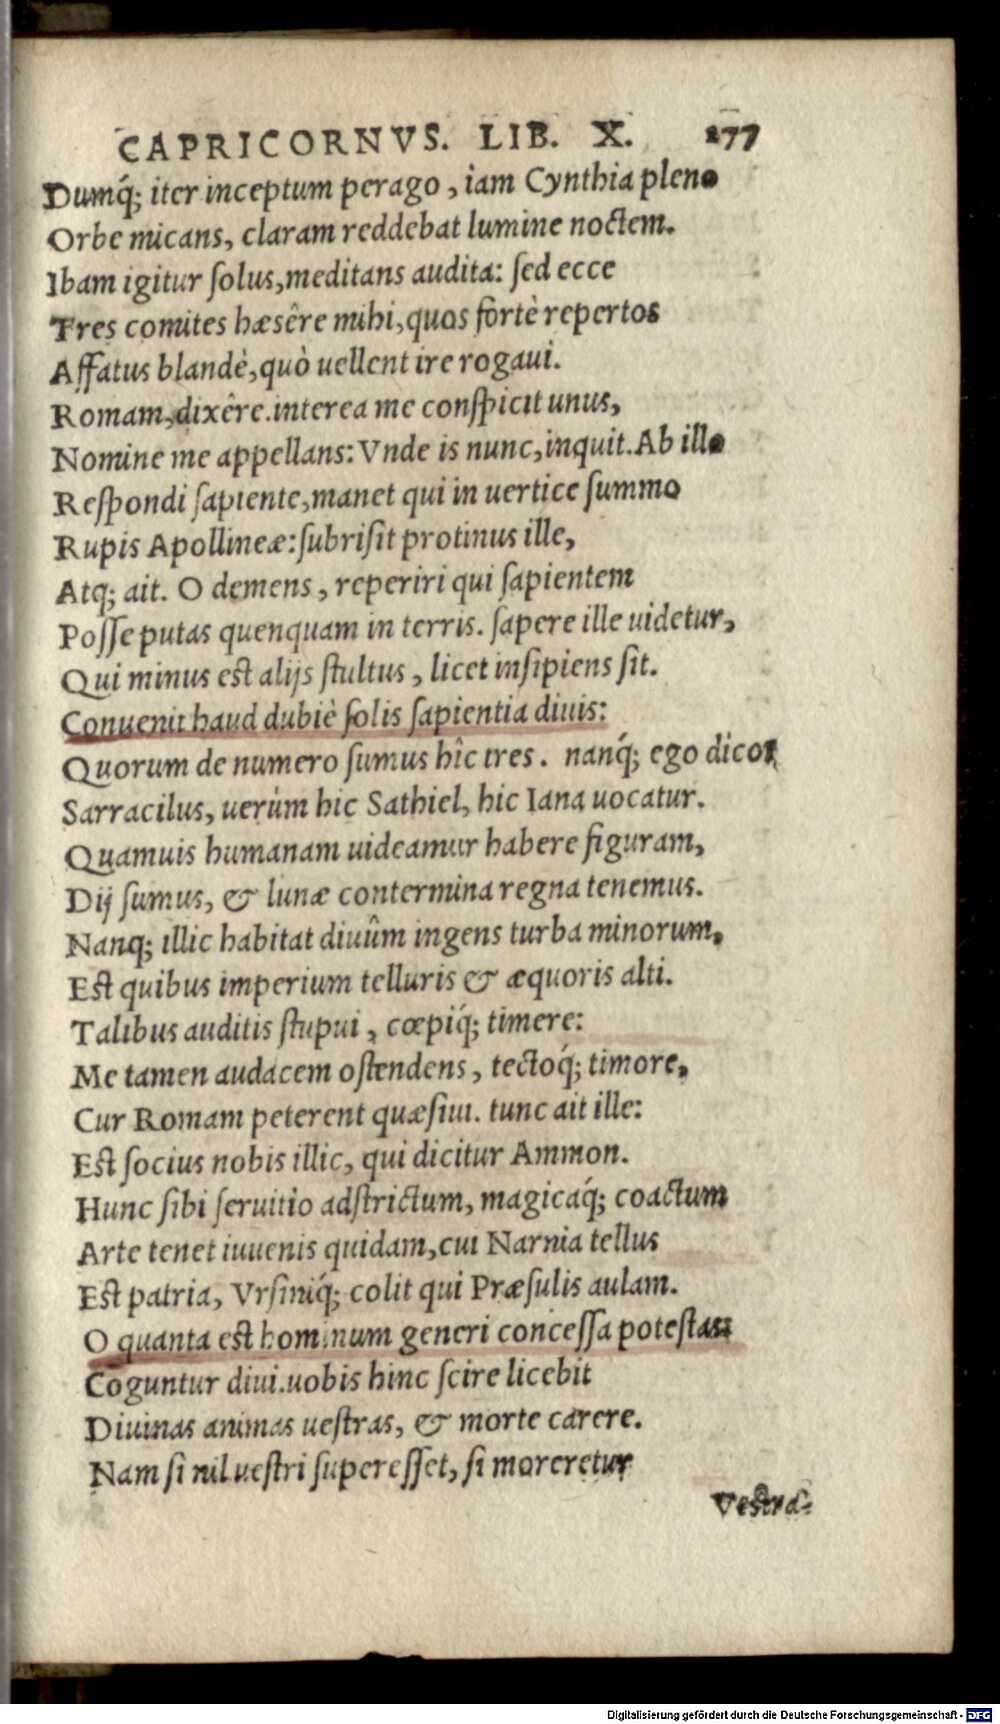 CAPRICORNVS. LIB. X. 277
Dumq́; iter inceptum perago, iam Cynthia pleno
Orbe micans, claram reddebat lumine noctem.
Ibam igitur ſolus, meditans audita: ſed ecce
Tres comites hæsêre mihi, quos fortè repertos
Affatus blandè, quò uellent ire rogaui.
Romam, dixêre. interea me conſpicit unus,
Nomine me appellans: Vnde is nunc, inquit. Ab illo
Reſpondi ſapiente, manet qui in uertice ſummo
Rupis Apollineæ: ſubriſit protinus ille,
Atq; ait. O demens, reperiri qui ſapientem
Poſſe putas quenquam in terris. ſapere ille uidetur,
Qui minus est alijs ſtultus, licet inſipiens ſit.
Conuenit haud dubiè ſolis ſapientia diuis:
Quorum de numero ſumus hîc tres. nanq́; ego dicor
Sarracilus, uerùm hic Sathiel, hic Iana uocatur.
Quamuis humanam uideamur habere figuram,
Dij ſumus, & lunæ contermina regna tenemus.
Nanq; illic habitat diuûm ingens turba minorum,
Est quibus imperium telluris & æquoris alti.
Talibus auditis ſtupui, cœpiq́; timere:
Me tamen audacem oſtendens, tectoq́; timore,
Cur Romam peterent quæſiui. tunc ait ille:
Est ſocius nobis illic, qui dicitur Ammon.
Hunc ſibi ſeruitio adſtrictum, magicaq́; coactum
Arte tenet iuuenis quidam, cui Narnia tellus
Est patria, Vrſiniq́; colit qui Præſulis aulam.
O quanta est hominum generi conceſſa poteſtas:
Coguntur diui. uobis hinc ſcire licebit
Diuinas animas ueſtras, & morte carere.
Nam ſi nil ueſtri ſupereſſet, ſi moreretur
Vestra
Digitalisierung gefördert durch die Deutsche Forschungsgemeinschaft - DFG